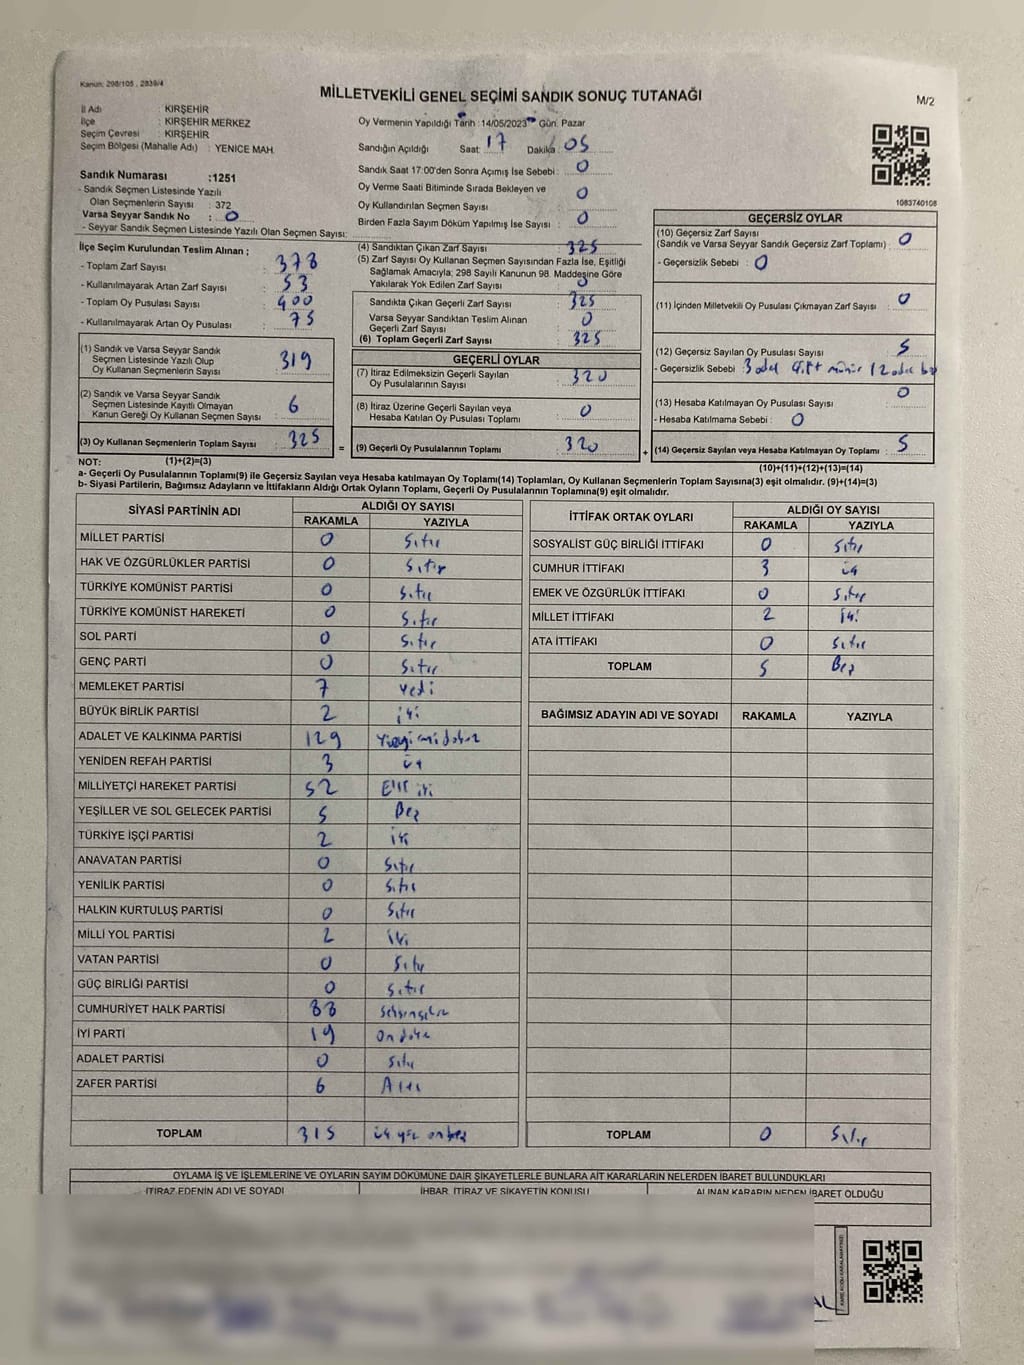 Kanun: 298/105 , 2839/4
MİLLETVEKİLİ GENEL SEÇİMİ SANDIK SONUÇ TUTANAĞI
M/2
İl Adı : KIRŞEHİR
İlçe : KIRŞEHİR MERKEZ
Seçim Çevresi : KIRŞEHİR
Seçim Bölgesi (Mahalle Adı) : YENİCE MAH.
Oy Vermenin Yapıldığı Tarih :14/05/2023 Gün: Pazar
Sandığın Açıldığı Saat: 17 Dakika: 05
Sandık Saat 17:00'den Sonra Açımış İse Sebebi: 0
Oy Verme Saati Bitiminde Sırada Bekleyen ve
Oy Kullandırılan Seçmen Sayısı : 0
Birden Fazla Sayım Döküm Yapılmış İse Sayısı : 0
1083740108
Sandık Numarası :1251
- Sandık Seçmen Listesinde Yazılı
Olan Seçmenlerin Sayısı : 372
Varsa Seyyar Sandık No : 0
- Seyyar Sandık Seçmen Listesinde Yazılı Olan Seçmen Sayısı:
İlçe Seçim Kurulundan Teslim Alınan ;
- Toplam Zarf Sayısı : 378
- Kullanılmayarak Artan Zarf Sayısı : 53
- Toplam Oy Pusulası Sayısı : 400
- Kullanılmayarak Artan Oy Pusulası : 75
(1) Sandık ve Varsa Seyyar Sandık
Seçmen Listesinde Yazılı Olup
Oy Kullanan Seçmenlerin Sayısı : 319
(2) Sandık ve Varsa Seyyar Sandık
Seçmen Listesinde Kayıtlı Olmayan
Kanun Gereği Oy Kullanan Seçmen Sayısı : 6
(3) Oy Kullanan Seçmenlerin Toplam Sayısı : 325
(1)+(2)=(3)
(4) Sandıktan Çıkan Zarf Sayısı : 325
(5) Zarf Sayısı Oy Kullanan Seçmen Sayısından Fazla İse, Eşitliği
Sağlamak Amacıyla; 298 Sayılı Kanunun 98. Maddesine Göre
Yakılarak Yok Edilen Zarf Sayısı : 0
Sandıkta Çıkan Geçerli Zarf Sayısı : 325
Varsa Seyyar Sandıktan Teslim Alınan
Geçerli Zarf Sayısı : 0
(6) Toplam Geçerli Zarf Sayısı : 325
GEÇERLİ OYLAR
(7) İtiraz Edilmeksizin Geçerli Sayılan
Oy Pusulalarının Sayısı : 320
(8) İtiraz Üzerine Geçerli Sayılan veya
Hesaba Katılan Oy Pusulası Toplamı : 0
= (9) Geçerli Oy Pusulalarının Toplamı : 320
GEÇERSİZ OYLAR
(10) Geçersiz Zarf Sayısı
(Sandık ve Varsa Seyyar Sandık Geçersiz Zarf Toplamı) : 0
- Geçersizlik Sebebi : 0
(11) İçinden Milletvekili Oy Pusulası Çıkmayan Zarf Sayısı : 0
(12) Geçersiz Sayılan Oy Pusulası Sayısı : 5
- Geçersizlik Sebebi : 3 adet çift mühür / 2 adet
(13) Hesaba Katılmayan Oy Pusulası Sayısı : 0
- Hesaba Katılmama Sebebi : 0
+ (14) Geçersiz Sayılan veya Hesaba Katılmayan Oy Toplamı : 5
(10)+(11)+(12)+(13)=(14)
NOT:
a- Geçerli Oy Pusulalarının Toplamı(9) ile Geçersiz Sayılan veya Hesaba katılmayan Oy Toplamı(14) Toplamları, Oy Kullanan Seçmenlerin Toplam Sayısına(3) eşit olmalıdır. (9)+(14)=(3)
b- Siyasi Partilerin, Bağımsız Adayların ve İttifakların Aldığı Ortak Oyların Toplamı, Geçerli Oy Pusulalarının Toplamına(9) eşit olmalıdır.
SİYASİ PARTİNİN ADI ALDIĞI OY SAYISI
RAKAMLA YAZIYLA
MİLLET PARTİSİ 0 Sıfır
HAK VE ÖZGÜRLÜKLER PARTİSİ 0 Sıfır
TÜRKİYE KOMÜNİST PARTİSİ 0 Sıfır
TÜRKİYE KOMÜNİST HAREKETİ 0 Sıfır
SOL PARTİ 0 Sıfır
GENÇ PARTİ 0 Sıfır
MEMLEKET PARTİSİ 7 Yedi
BÜYÜK BİRLİK PARTİSİ 2 iki
ADALET VE KALKINMA PARTİSİ 129 Yüzyirmidokuz
YENİDEN REFAH PARTİSİ 3 üç
MİLLİYETÇİ HAREKET PARTİSİ 52 Elli iki
YEŞİLLER VE SOL GELECEK PARTİSİ 5 Beş
TÜRKİYE İŞÇİ PARTİSİ 2 iki
ANAVATAN PARTİSİ 0 Sıfır
YENİLİK PARTİSİ 0 Sıfır
HALKIN KURTULUŞ PARTİSİ 0 Sıfır
MİLLİ YOL PARTİSİ 2 iki
VATAN PARTİSİ 0 Sıfır
GÜÇ BİRLİĞİ PARTİSİ 0 Sıfır
CUMHURİYET HALK PARTİSİ 88 Seksensekiz
İYİ PARTİ 19 On dokuz
ADALET PARTİSİ 0 Sıfır
ZAFER PARTİSİ 6 Altı
TOPLAM 315 üç yüz onbeş
İTTİFAK ORTAK OYLARI ALDIĞI OY SAYISI
RAKAMLA YAZIYLA
SOSYALİST GÜÇ BİRLİĞİ İTTİFAKI 0 Sıfır
CUMHUR İTTİFAKI 3 üç
EMEK VE ÖZGÜRLÜK İTTİFAKI 0 Sıfır
MİLLET İTTİFAKI 2 İki
ATA İTTİFAKI 0 Sıfır
TOPLAM 5 Beş
BAĞIMSIZ ADAYIN ADI VE SOYADI RAKAMLA YAZIYLA
TOPLAM 0 Sıfır
OYLAMA İŞ VE İŞLEMLERİNE VE OYLARIN SAYIM DÖKÜMÜNE DAİR ŞİKAYETLERLE BUNLARA AİT KARARLARIN NELERDEN İBARET BULUNDUKLARI
İTİRAZ EDENİN ADI VE SOYADI İHBAR, İTİRAZ VE ŞİKAYETİN KONUSU ALINAN KARARIN NEDEN İBARET OLDUĞU